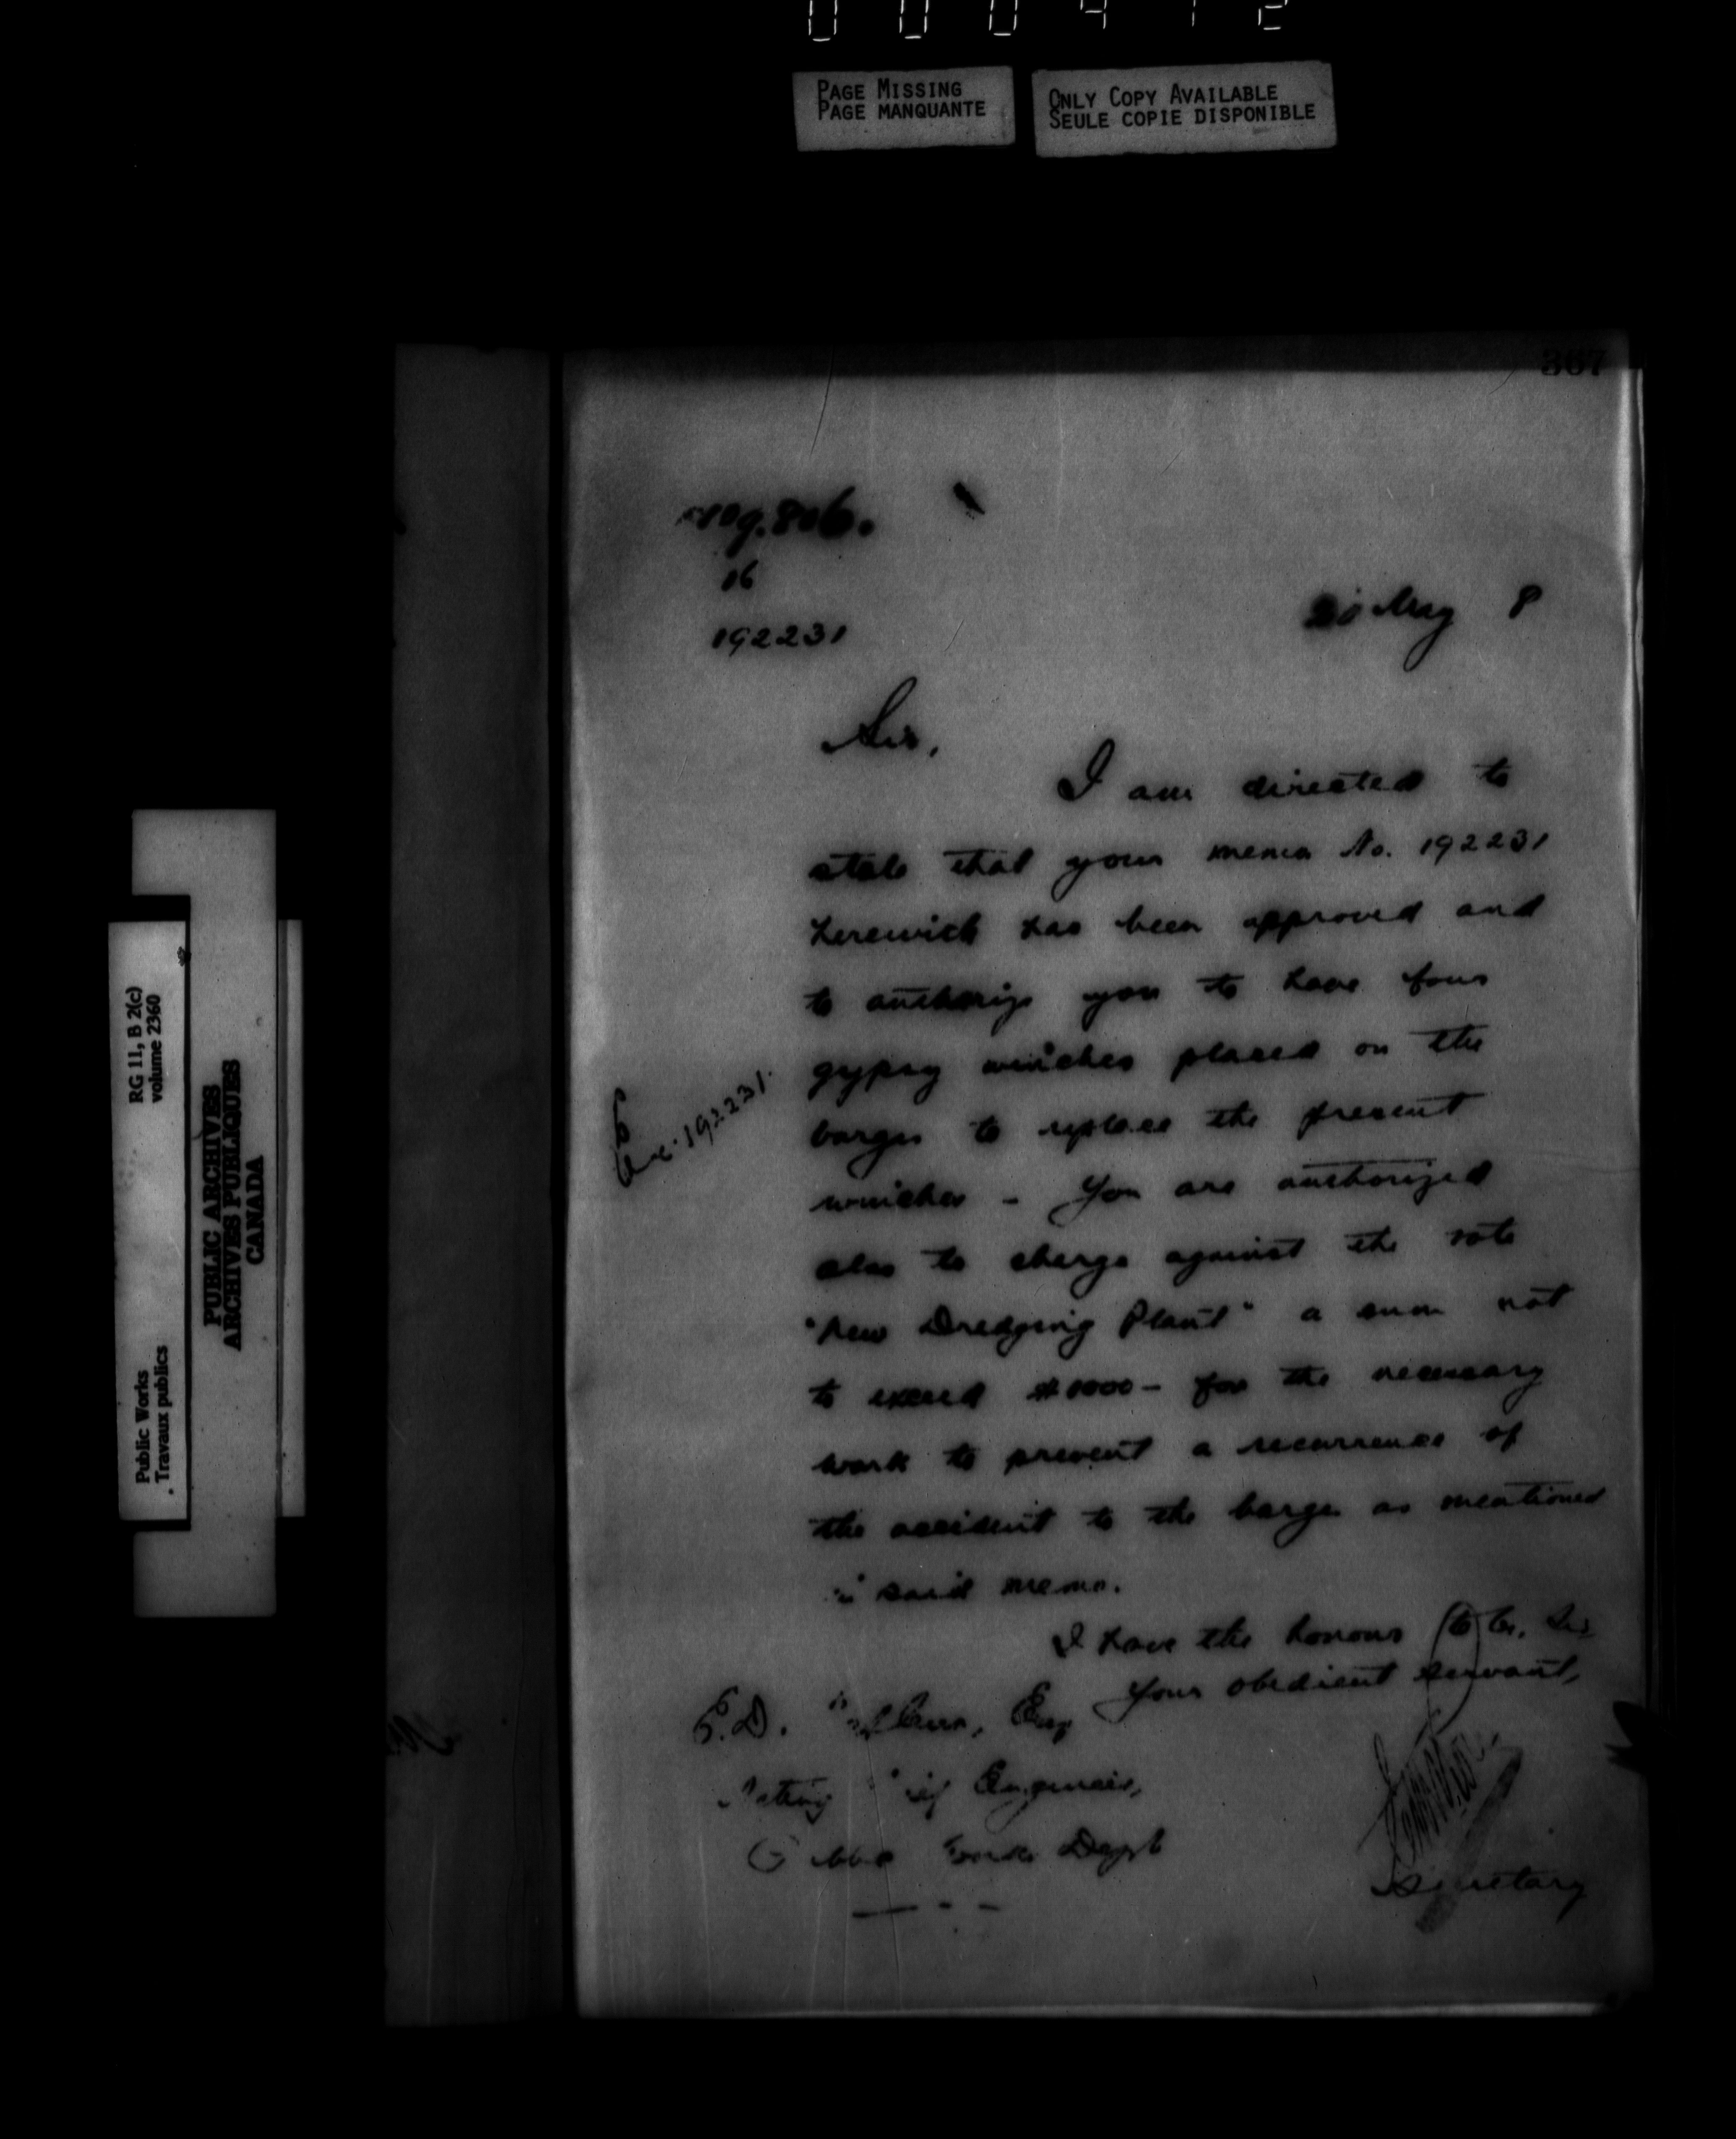 000412
PAGE MISSING
PAGE MANQUANTE
ONLY COPY AVAILABLE
SEULE COPIE DISPONIBLE
367
109.806.
16
192231
May 8
Sir,
I am directed to
state that your memo No. 192231
herewith has been approved and
to authorize you to have four
gypsy winches placed on the
barges to replace the present
winches - You are authorized
also to charge against the vote
"New Dredging Plant" a sum not
to exceed $1000 - for the necessary
work to prevent a recurrence of
the accident to the barges as mentioned
in said memo.
192231.
I have the honour to be, Sir
Your obedient servant,
Secretary
E.D. Esq
Acting Engineer,
Dept
RG 11, B 2(c)
volume 2360
Public Works
Travaux publics
PUBLIC ARCHIVES
ARCHIVES PUBLIQUES
CANADA